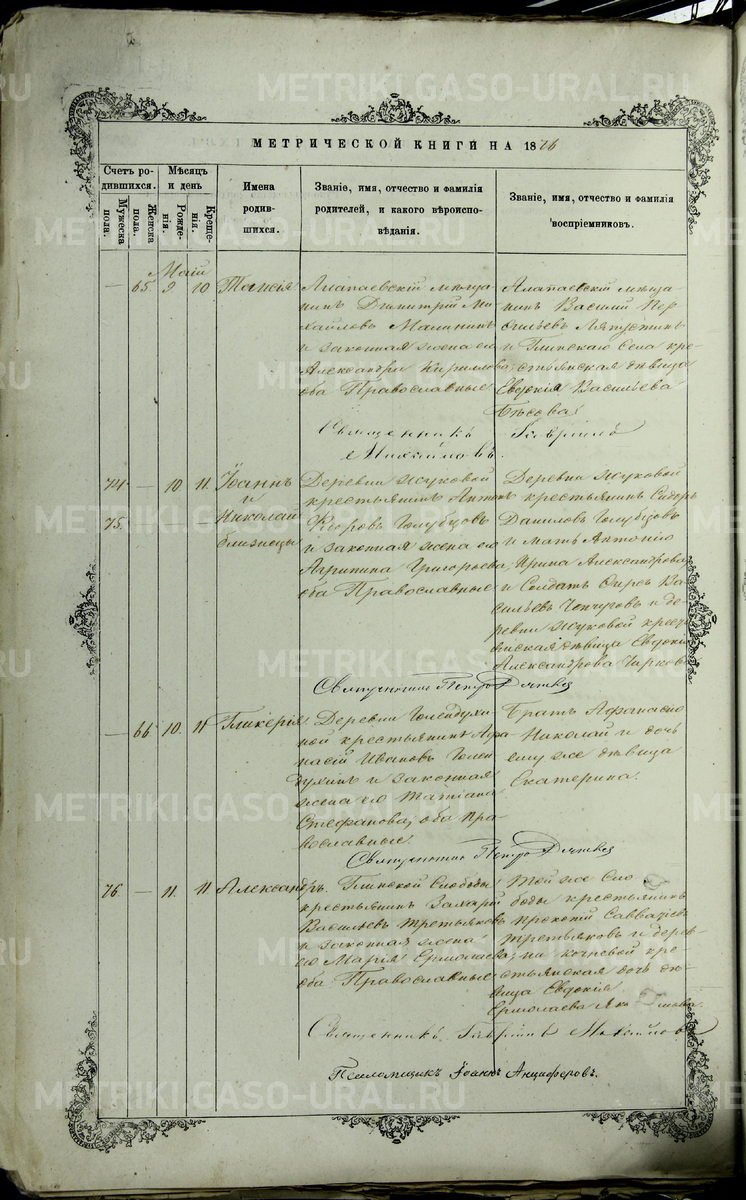 METRIKI.GASO-URAL.RU
МЕТРИЧЕСКОЙ КНИГИ НА 1876
Счетъ ро-
дившихся.
Мужеска
пола.
Женска
пола.
Мѣсяцъ
и день
Рожде-
нія.
Креще-
нія.
Имена
родив-
шихся.
Званіе, имя, отчество и фамилія
родителей, и какого вѣроиспо-
вѣданія.
Званіе, имя, отчество и фамилія
воспріемниковъ.
Маій
— 65. 9 10
Таисія
Алапаевскій мѣща-
нинъ Димитрій Ми-
хайловъ Маланинъ
и законная жена его
Александра Кирилова,
оба Православные
Алапаевскій мѣща-
нинъ Василій
и Глинскаго села кре-
стьянская дѣвица
Евдокія Васильева
Священникъ Гавріилъ
Михайловъ.
74. — 10. 11.
Іоаннъ
и
75. — — —
Николай
близнецы
Деревни Жуковой
крестьянинъ Антонъ
Голубцовъ
и законная жена его
Агрипина Григорьева,
оба Православные
Деревни Жуковой
крестьянинъ Сидоръ
Даниловъ Голубцовъ
и мать Антонія
Ирина Александрова,
и Солдатъ Ва-
сильевъ и де-
ревни Жуковой кресть-
янская дѣвица Евдокія
Александрова
Священникъ Петръ
— 66 10. 11
Гликерія
Деревни Голендухи-
ной крестьянинъ Аѳа-
насій Ивановъ Голен-
духинъ и законная
жена его Татіана
Стефанова, оба Пра-
вославные.
Братъ Аѳанасію
Николай и дочь
ему же дѣвица
Екатерина.
Священникъ Петръ
76. — 11. 11
Александръ.
Глинской Слободы
крестьянинъ
Васильевъ Третьяковъ
и законная жена
его Марія Ермолаева,
оба Православные
Той же Сло-
боды крестьянинъ
Прокопій Савватіевъ
Третьяковъ и дерев-
ни кре-
стьянская дочь дѣ-
вица Евдокія
Ермолаева
Священникъ Гавріилъ Михайловъ
Псаломщикъ Іоаннъ Анциферовъ.